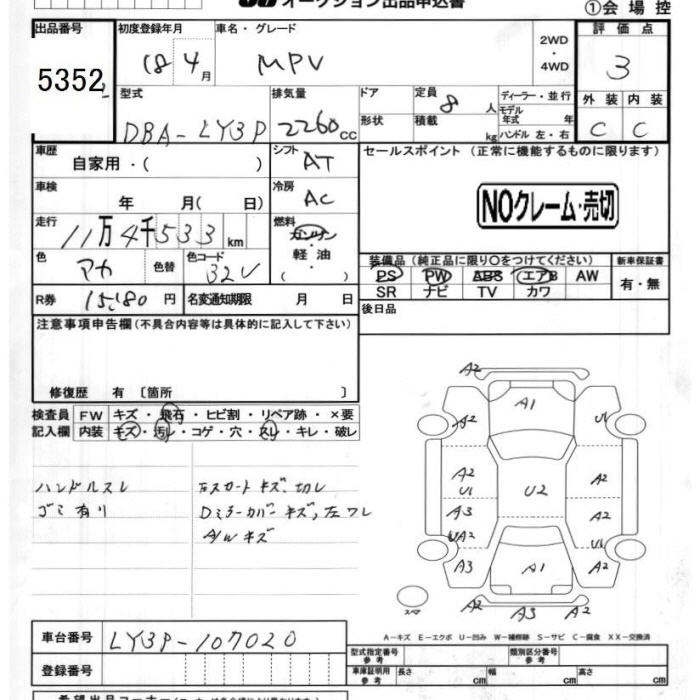 オークション出品申込書
①会場控
出品番号 初度登録年月 車名・グレード 2WD・4WD 評価点
5352 18 4月 MPV 3
型式 排気量 ドア 定員 8人 ディーラー・並行 外装 内装
モデル年式 年
DBA-LY3P 2260cc 形状 積載 kg ハンドル 左・右 C C
車歴 自家用・( ) シフト AT セールスポイント (正常に機能するものに限ります)
車検 年 月( 日) 冷房 AC NOクレーム・売切
走行 11万4千533km 燃料 ガソリン・軽油・( )
色 アカ 色替 色コード 32V 装備品 (純正品に限り○をつけてください) 新車保証書
PS PW ABS エアB AW 有・無
SR ナビ TV カワ
R券 15,180円 名変通知期限 月 日 後日品
注意事項申告欄(不具合内容等は具体的に記入して下さい)
修復歴 有 〔箇所 〕
検査員記入欄 FW キズ・飛石・ヒビ割・リペア跡・×要
内装 キズ・汚レ・コゲ・穴・スレ・キレ・破レ
ハンドルスレ
ゴミ有り
左スカートキズ、切レ
Dミラーカバーキズ,左ワレ
A/Wキズ
A2
A1
A2 U1
A2 U1 U2 A2
A3 A2
UA2 U1
A3 A1 A2
スペア
A2 A3 A2
A-キズ E-エクボ U-凹み W-補修跡 S-サビ C-腐食 XX-交換済
車台番号 LY3P-107020
登録番号
型式指定番号 参考 類別区分番号 参考
車庫証明用 参考 長さ cm 幅 cm 高さ cm